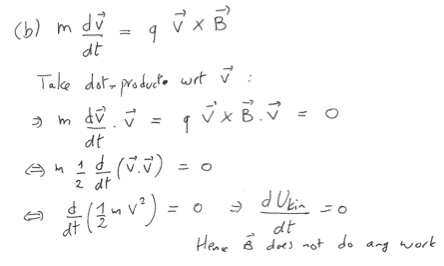 (b) m dv⃗/dt = q v⃗ × B⃗
Take dot-product wrt v⃗ :
⇒ m dv⃗/dt . v⃗ = q v⃗ × B⃗ . v⃗ = 0
⇔ m 1/2 d/dt (v⃗.v⃗) = 0
⇔ d/dt (1/2 m v²) = 0 ⇒ dUkin/dt = 0
Hence B⃗ does not do any work